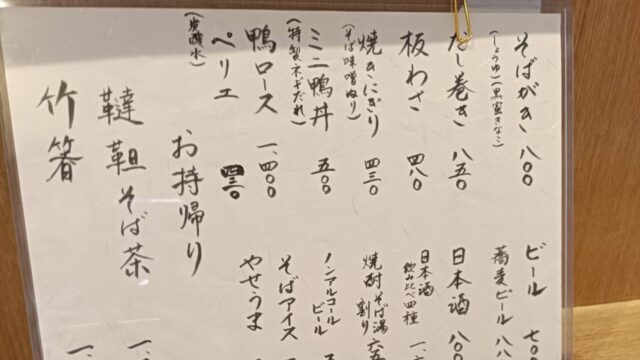 そばがき 八〇〇
(しょうゆ)(黒蜜きなこ)
だし巻き 八五〇
板わさ 四八〇
焼きにぎり 四三〇
(そば味噌ぬり)
ミニ鴨丼 五〇〇
(特製ネギだれ)
鴨ロース 一、四〇〇
ペリエ 四三〇
(炭酸水)
お持帰り
韃靼そば茶 一、
竹箸 一、
ビール 七〇
蕎麦ビール 八八
日本酒 八〇
日本酒 飲み比べ四種 一、
焼酎そば湯割り 六五
ノンアルコールビール
そばアイス
やせうま